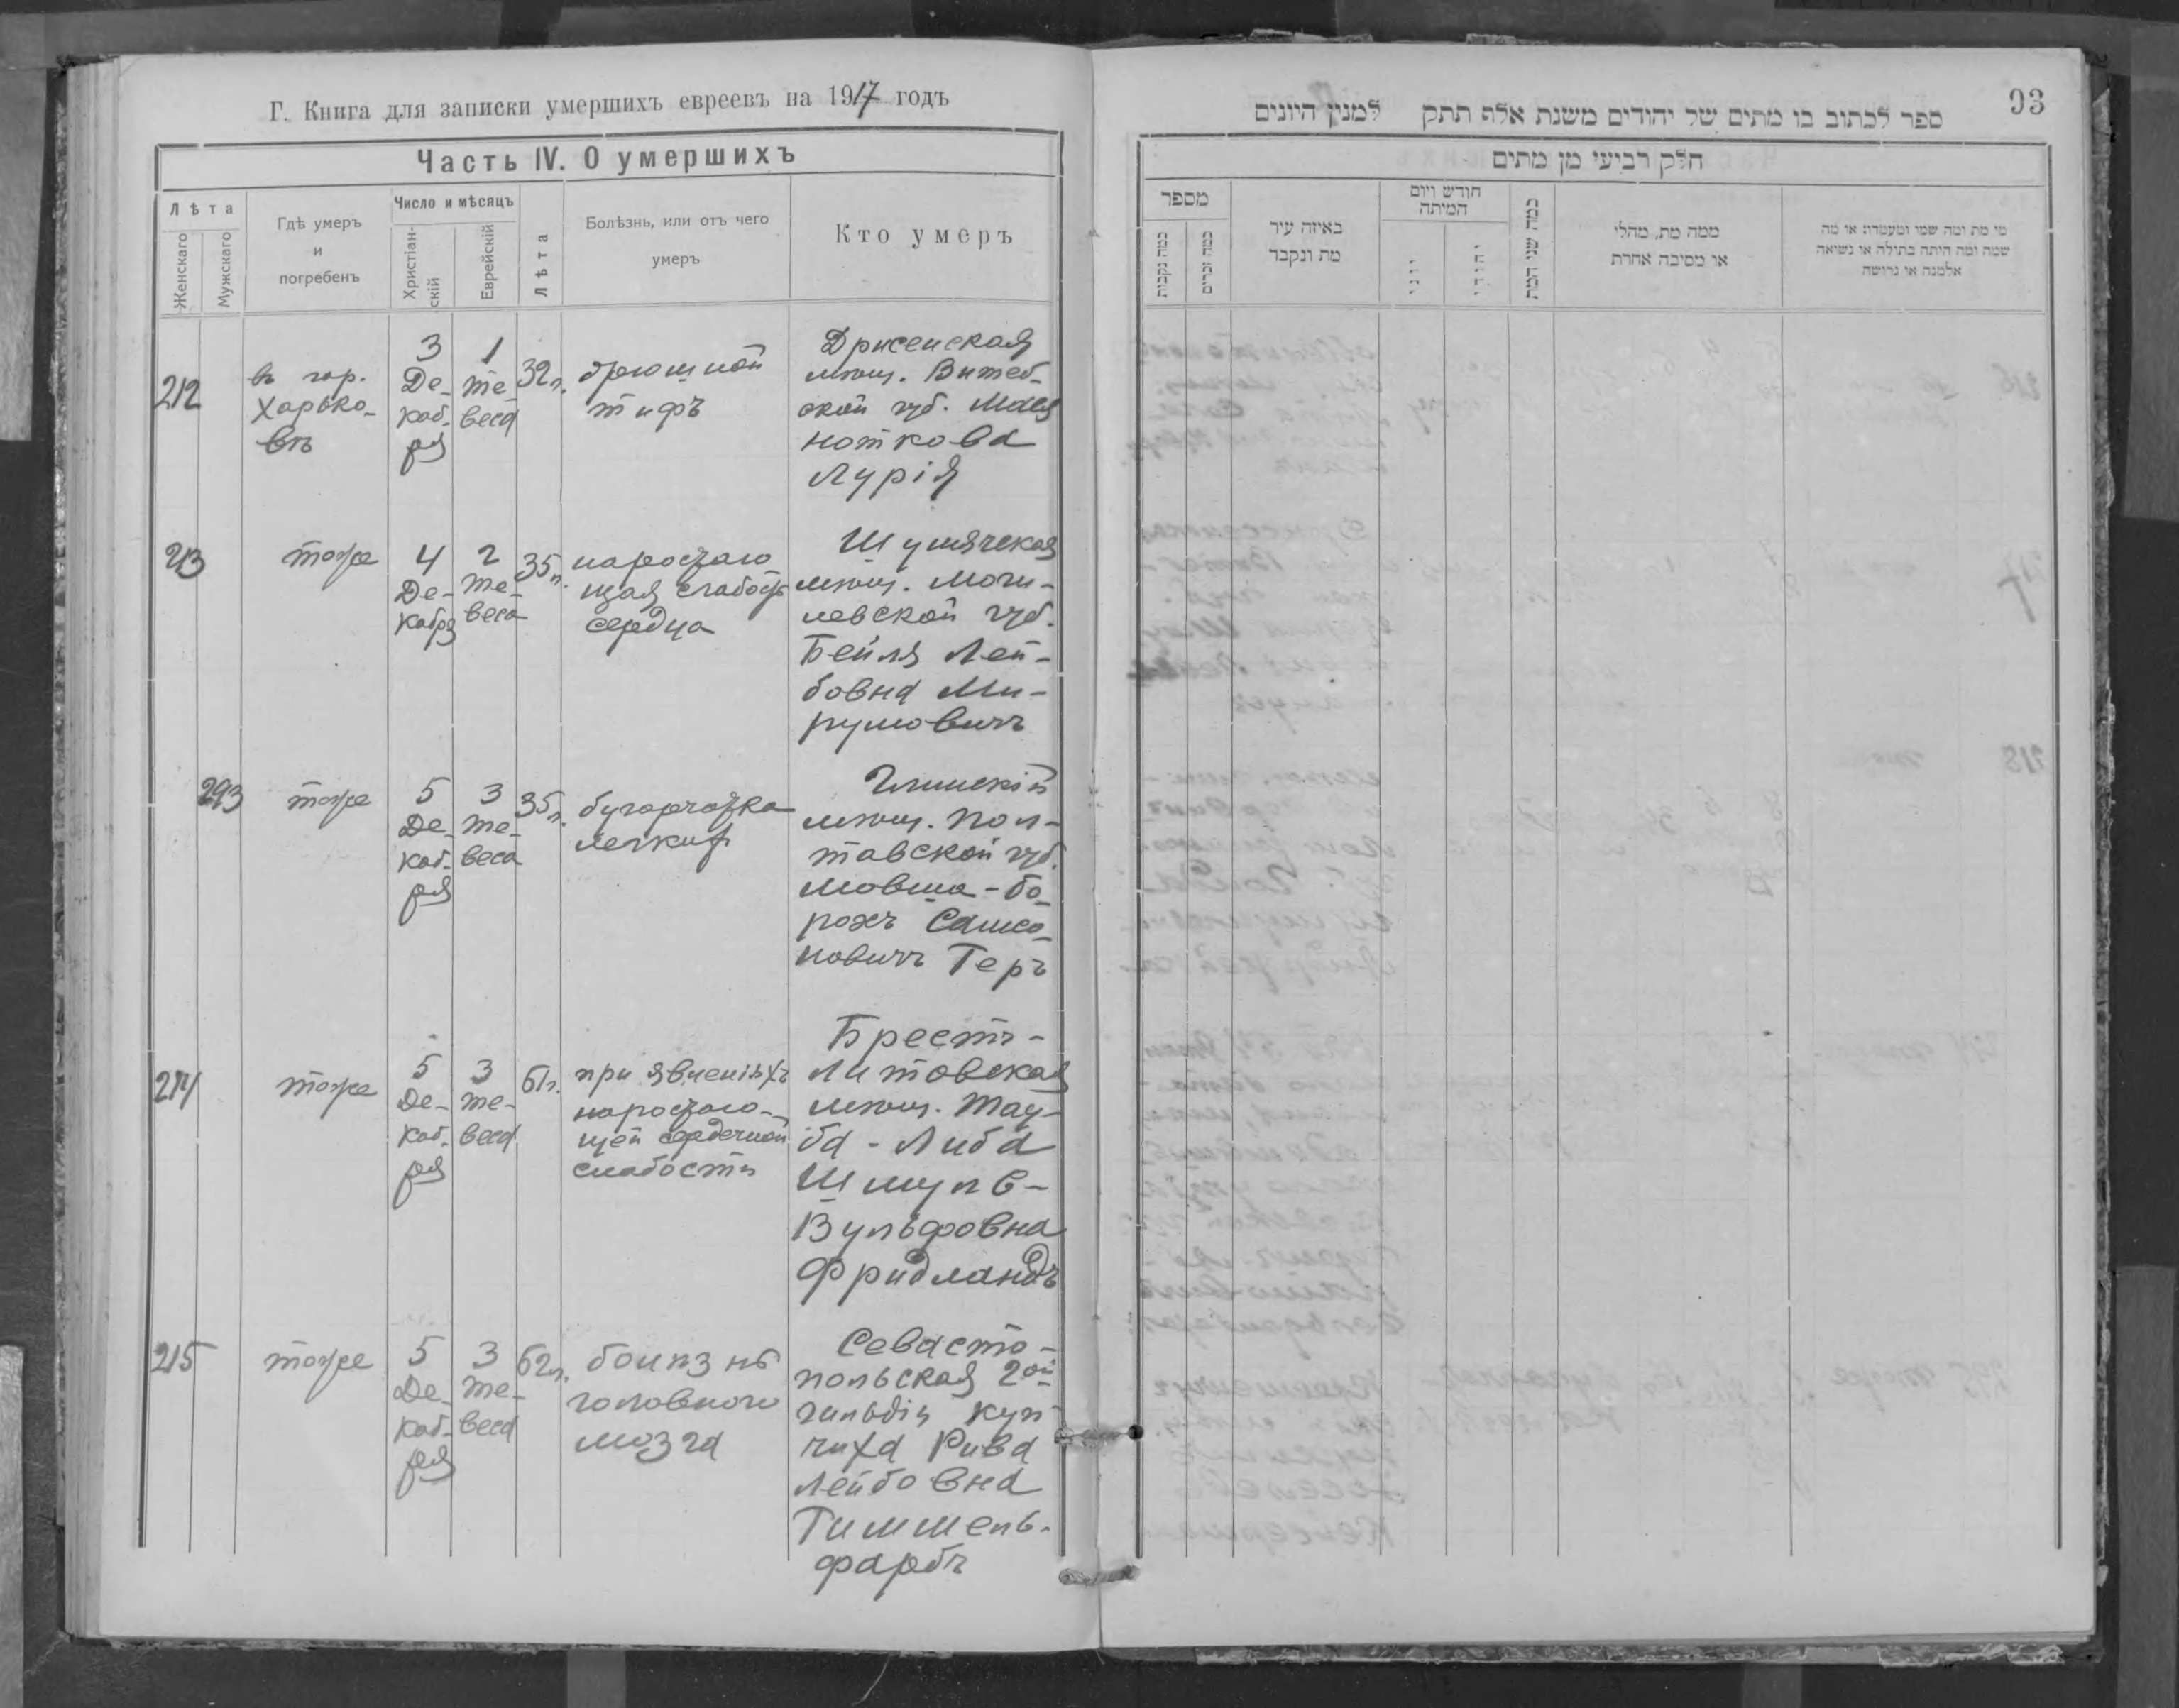 Г. Книга для записки умершихъ евреевъ на 1917 годъ
Часть IV. О умершихъ
Лѣта
Женскаго
Мужскаго
Гдѣ умеръ
и
погребенъ
Число и мѣсяцъ
Христіан-
скій
Еврейскій
Лѣта
Болѣзнь, или отъ чего
умеръ
Кто умеръ
212
въ гор.
Харько-
вѣ
3
Де-
каб-
ря
1
те
веса
32 л.
брюшной
тифъ
Дрисенская
мѣщ. Витеб-
ской губ. Мася
Ноткова
Лурія
213
тоже
4
Де-
кабря
2
те-
веса
35 л.
наростаю
щая слабость
сердца
Шумячская
мѣщ. Моги-
левской губ.
Бейля Лей-
бовна Ми-
румовичъ
293
тоже
5
Де-
каб-
ря
3
те-
веса
35 л.
бугорчатка
легкихъ
Глинскій
мѣщ. Пол-
тавской губ.
Мовша-Бо-
рохъ Самсо-
новичъ Теръ
214
тоже
5
Де-
каб-
ря
3
те-
веса
61 г.
при явленіяхъ
наростаю-
щей сердечной
слабости
Брестъ-
Литовская
мѣщ. Тау-
ба-Либа
Шмуль-
Вульфовна
Фридландъ
215
тоже
5
Де-
каб-
ря
3
те-
веса
62 л.
болѣзнь
головного
мозга
Севасто-
польская 2ой
гильдіи куп-
чиха Рива
Лейбовна
Гиммель-
фарбъ
93
ספר לכתוב בו מתים של יהודים משנת אלף תתק למנין היונים
חלק רביעי מן מתים
מספר
כמה נקבות
כמה זכרים
באיזה עיר
מת ונקבר
חודש ויום
המיתה
יוני
יהודי
כמה שני המת
ממה מת, מחלי
או מסיבה אחרת
מי מת ומה שמו ומעמדו או מה
שמה ומה היתה בתולה או נשואה
אלמנה או גרושה